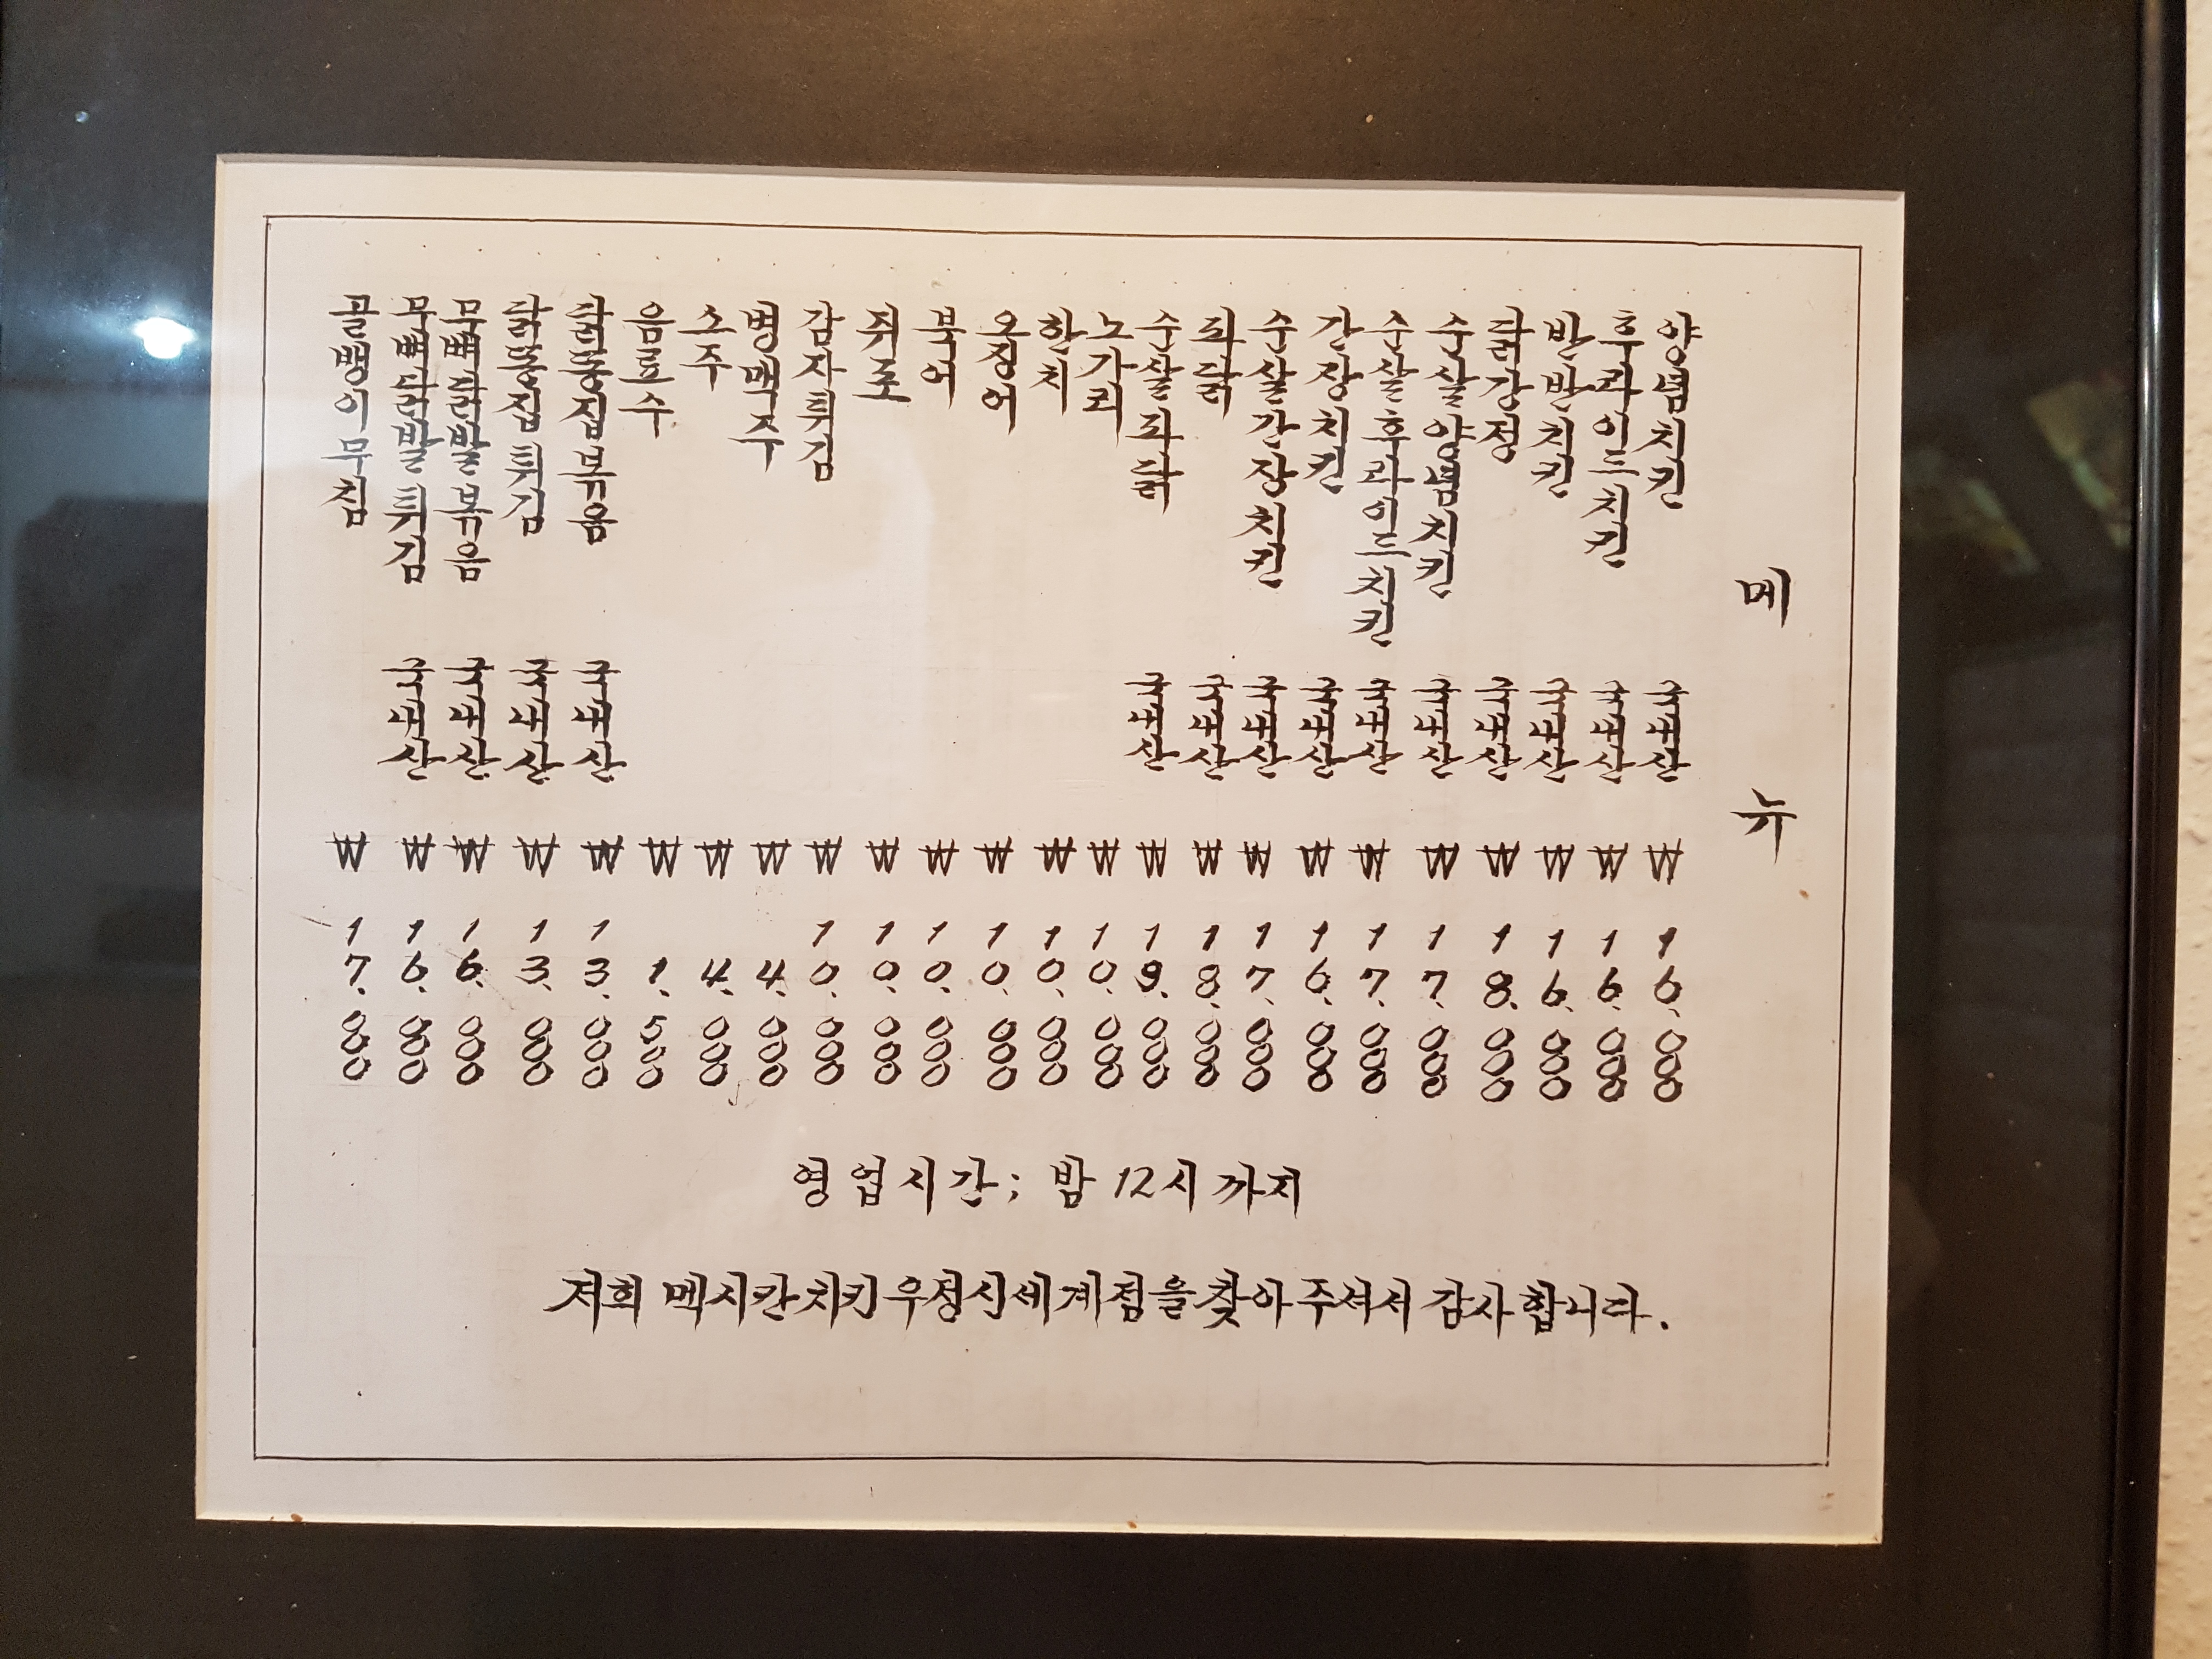 메뉴
양념치킨 국내산 ₩16,000
후라이드치킨 국내산 ₩16,000
반반치킨 국내산 ₩16,000
닭강정 국내산 ₩18,000
순살양념치킨 국내산 ₩17,000
순살후라이드치킨 국내산 ₩17,000
간장치킨 국내산 ₩16,000
순살간장치킨 국내산 ₩17,000
파닭 국내산 ₩18,000
순살파닭 국내산 ₩19,000
노가리 ₩10,000
한치 ₩10,000
오징어 ₩10,000
북어 ₩10,000
쥐포 ₩10,000
감자튀김 ₩10,000
병맥주 ₩4,000
소주 ₩4,000
음료수 ₩1,500
닭똥집볶음 국내산 ₩13,000
닭똥집튀김 국내산 ₩13,000
무뼈닭발볶음 국내산 ₩16,000
무뼈닭발튀김 국내산 ₩16,000
골뱅이무침 ₩17,000
영업시간; 밤 12시 까지
저희 멕시칸치킨 우정신세계점을 찾아 주셔서 감사합니다.